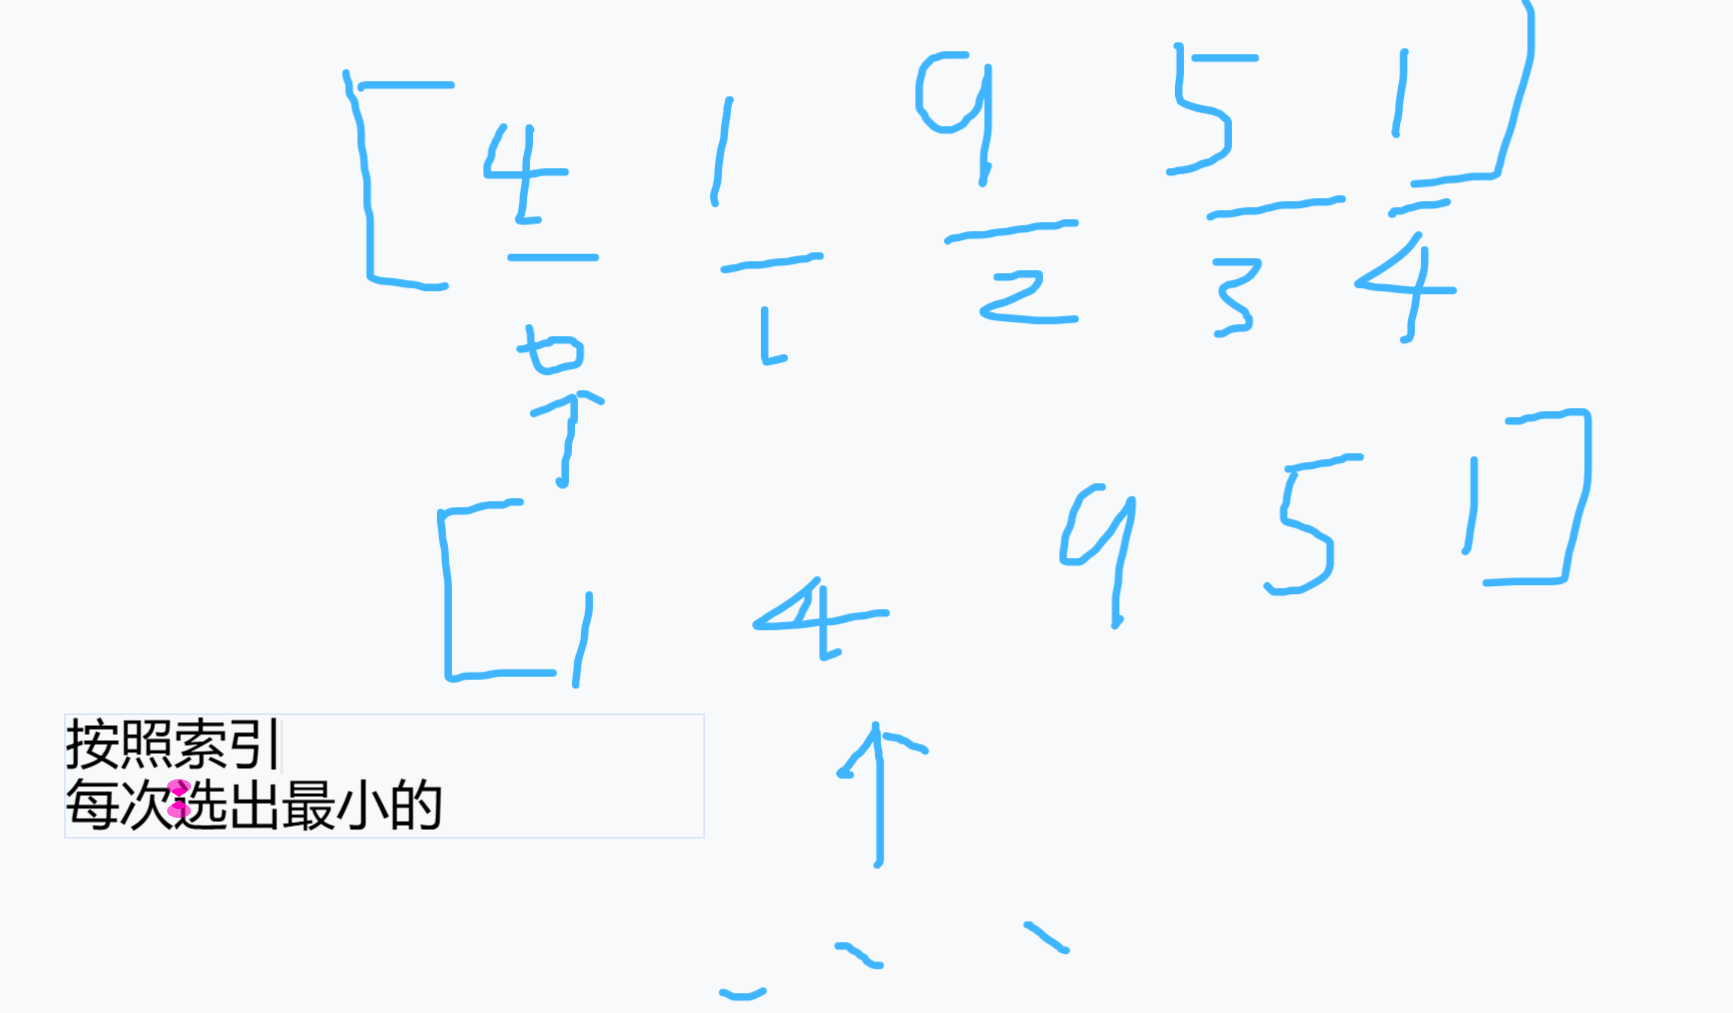 [4 1 9 5 1]
0 1 2 3 4
[1 4 9 5 1]
按照索引
每次选出最小的